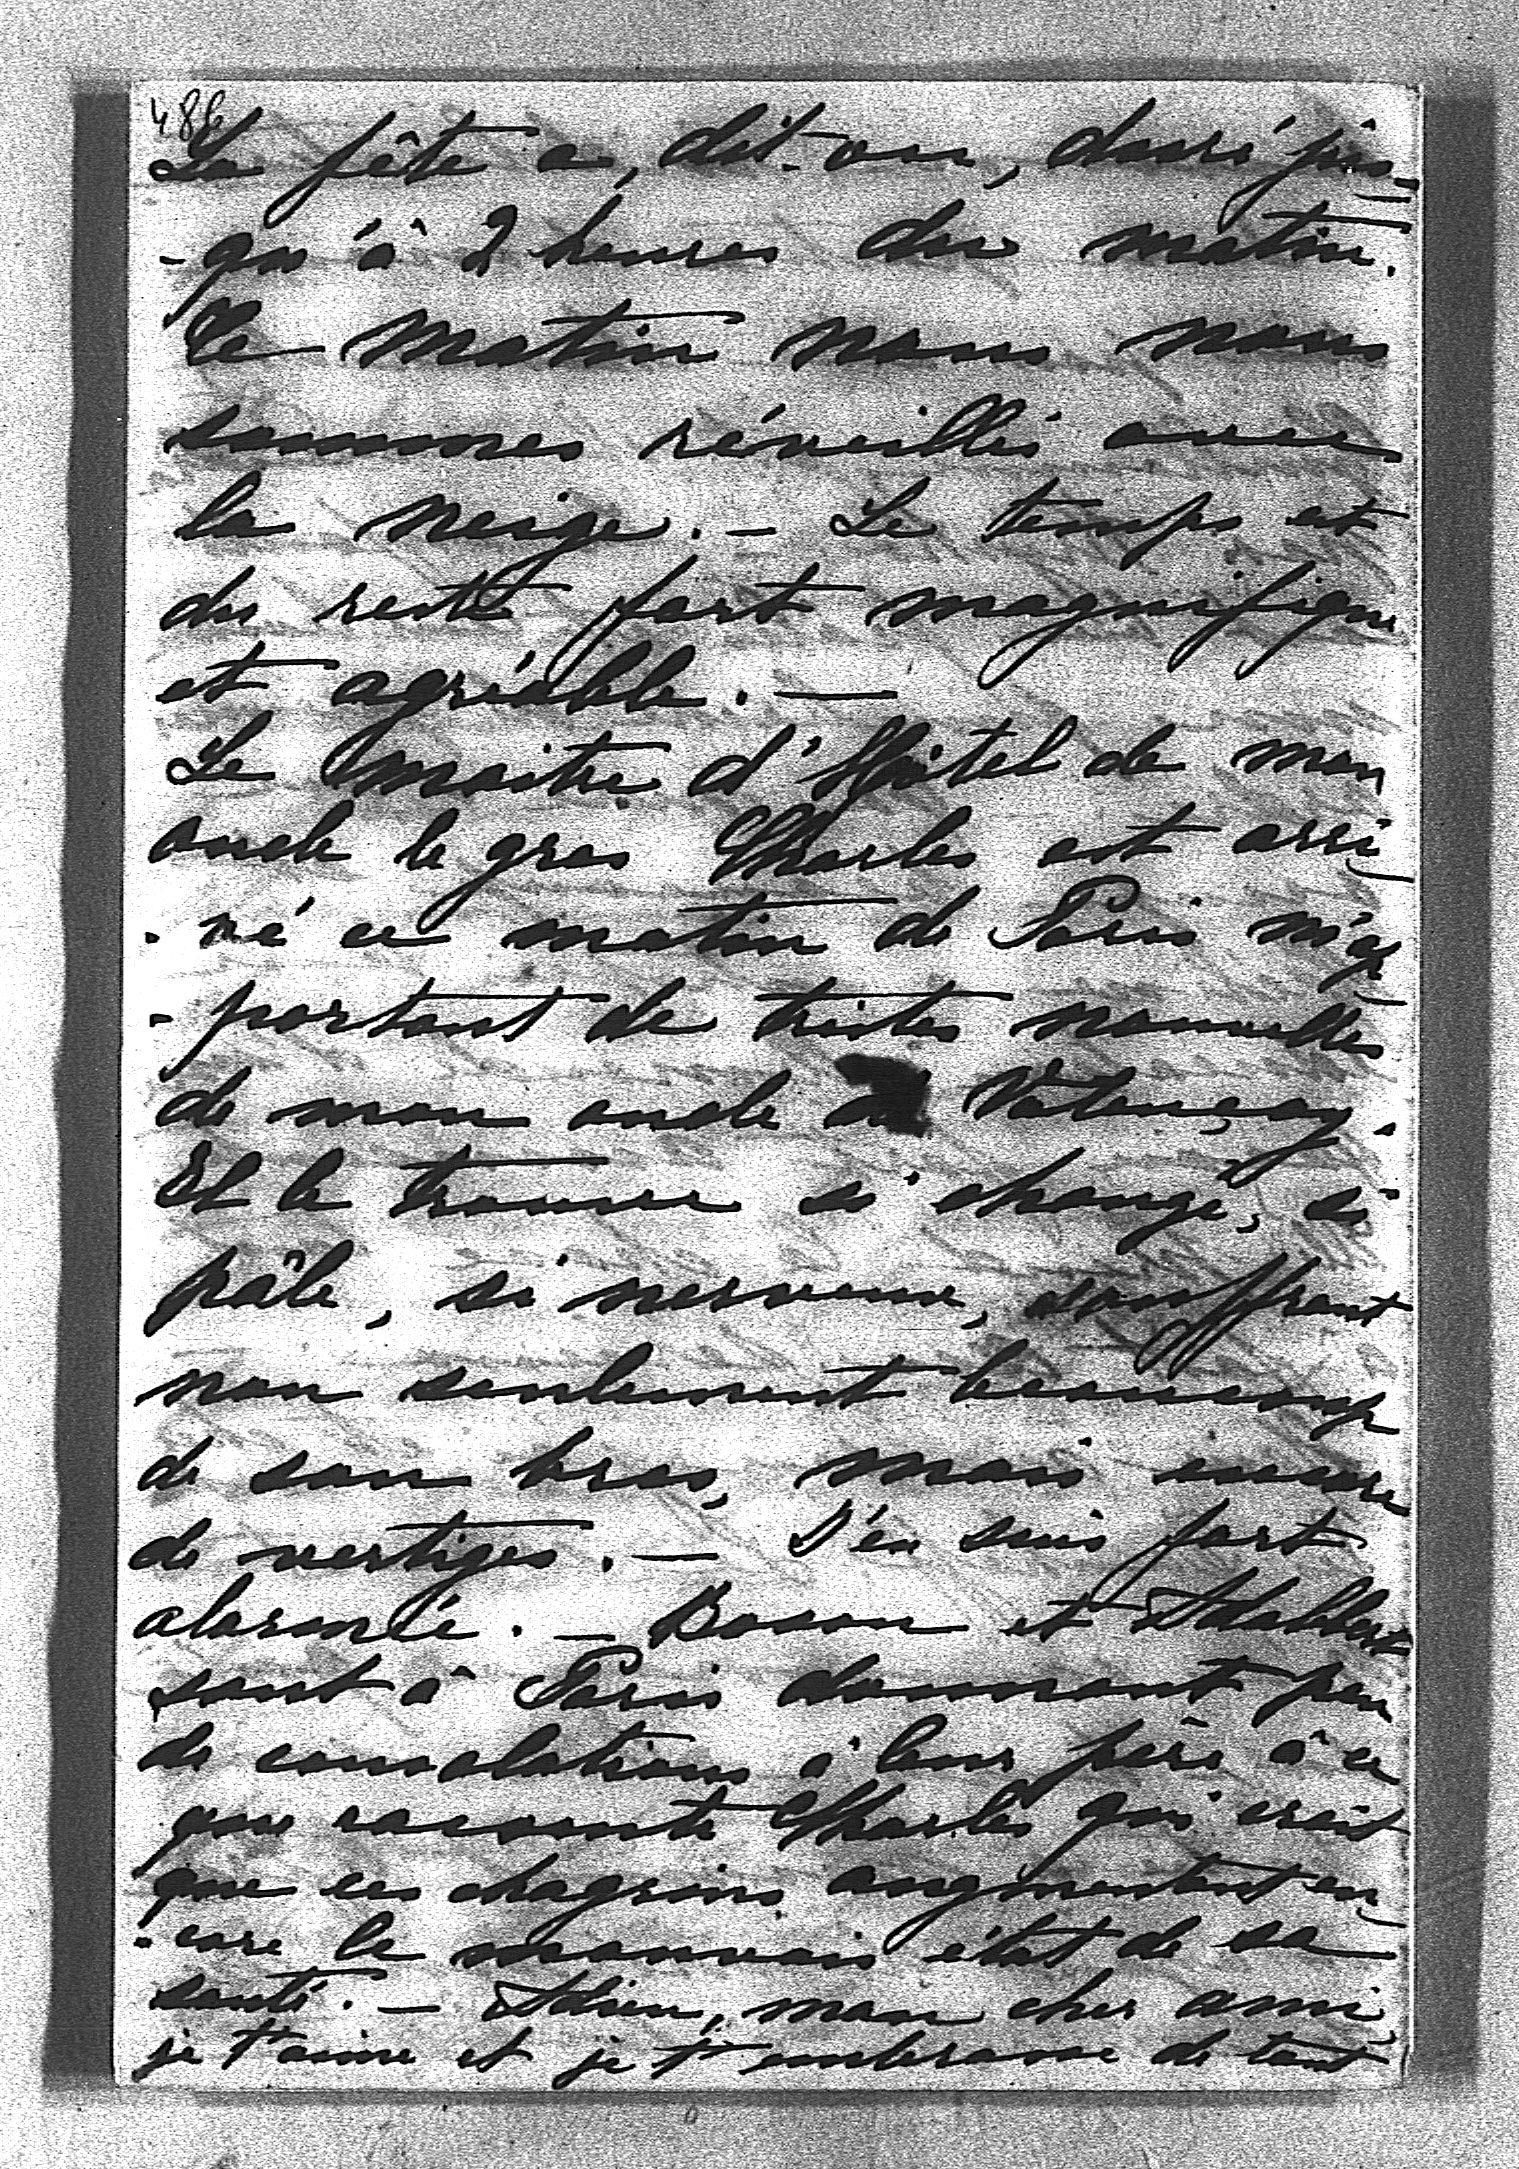 486
La fête a, dit-on, duré jus-
-qu'à 2 heures du matin.
Ce matin nous nous
sommes réveillés avec
la neige. — Le temps est
du reste fort magnifique
et agréable. —
Le maitre d'Hôtel de mon
oncle le gros Charles est arri-
-vé ce matin de Paris m'ap-
-portant de tristes nouvelles
de mon oncle de Valençay.
Il le trouve si changé, si
pâle, si nerveux, souffrant
non seulement beaucoup
de son bras, mais encore
de vertiges. — J'en suis fort
alarmée. — Boson et Adalbert
sont à Paris donnant peu
de consolations à leur père à ce
que raconte Charles qui croit
que ces chagrins augmentent en-
-core le mauvais état de sa
santé. — Adieu, mon cher ami,
je t'aime et je t'embrasse de tout